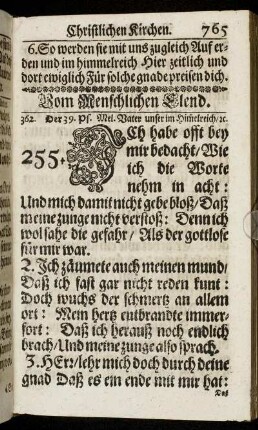 Christlichen Kirchen. 765
6. So werden sie mit uns zugleich Auf er-
den und im himmelreich Hier zeitlich und
dort ewiglich Für solche gnade preisen dich.
Vom Menschlichen Elend.
362. Der 39. Ps. Mel. Vater unser im Himelreich/ꝛc.
255. Ich habe offt bey
mir bedacht/ Wie
ich die Worte
nehm in acht:
Und mich damit nicht gebe bloß/ Daß
meine zunge nicht verstoß: Denn ich
wol sahe die gefahr/ Als der gottlose
für mir war.
2. Ich zäumete auch meinen mund/
Daß ich fast gar nicht reden kunt:
Doch wuchs der schmertz an allem
ort: Mein hertz entbrandte immer-
fort: Daß ich herauß noch endlich
brach/ Und meine zunge also sprach.
3. HErr/ lehr mich doch durch deine
gnad Daß es ein ende mit mir hat:
Daß